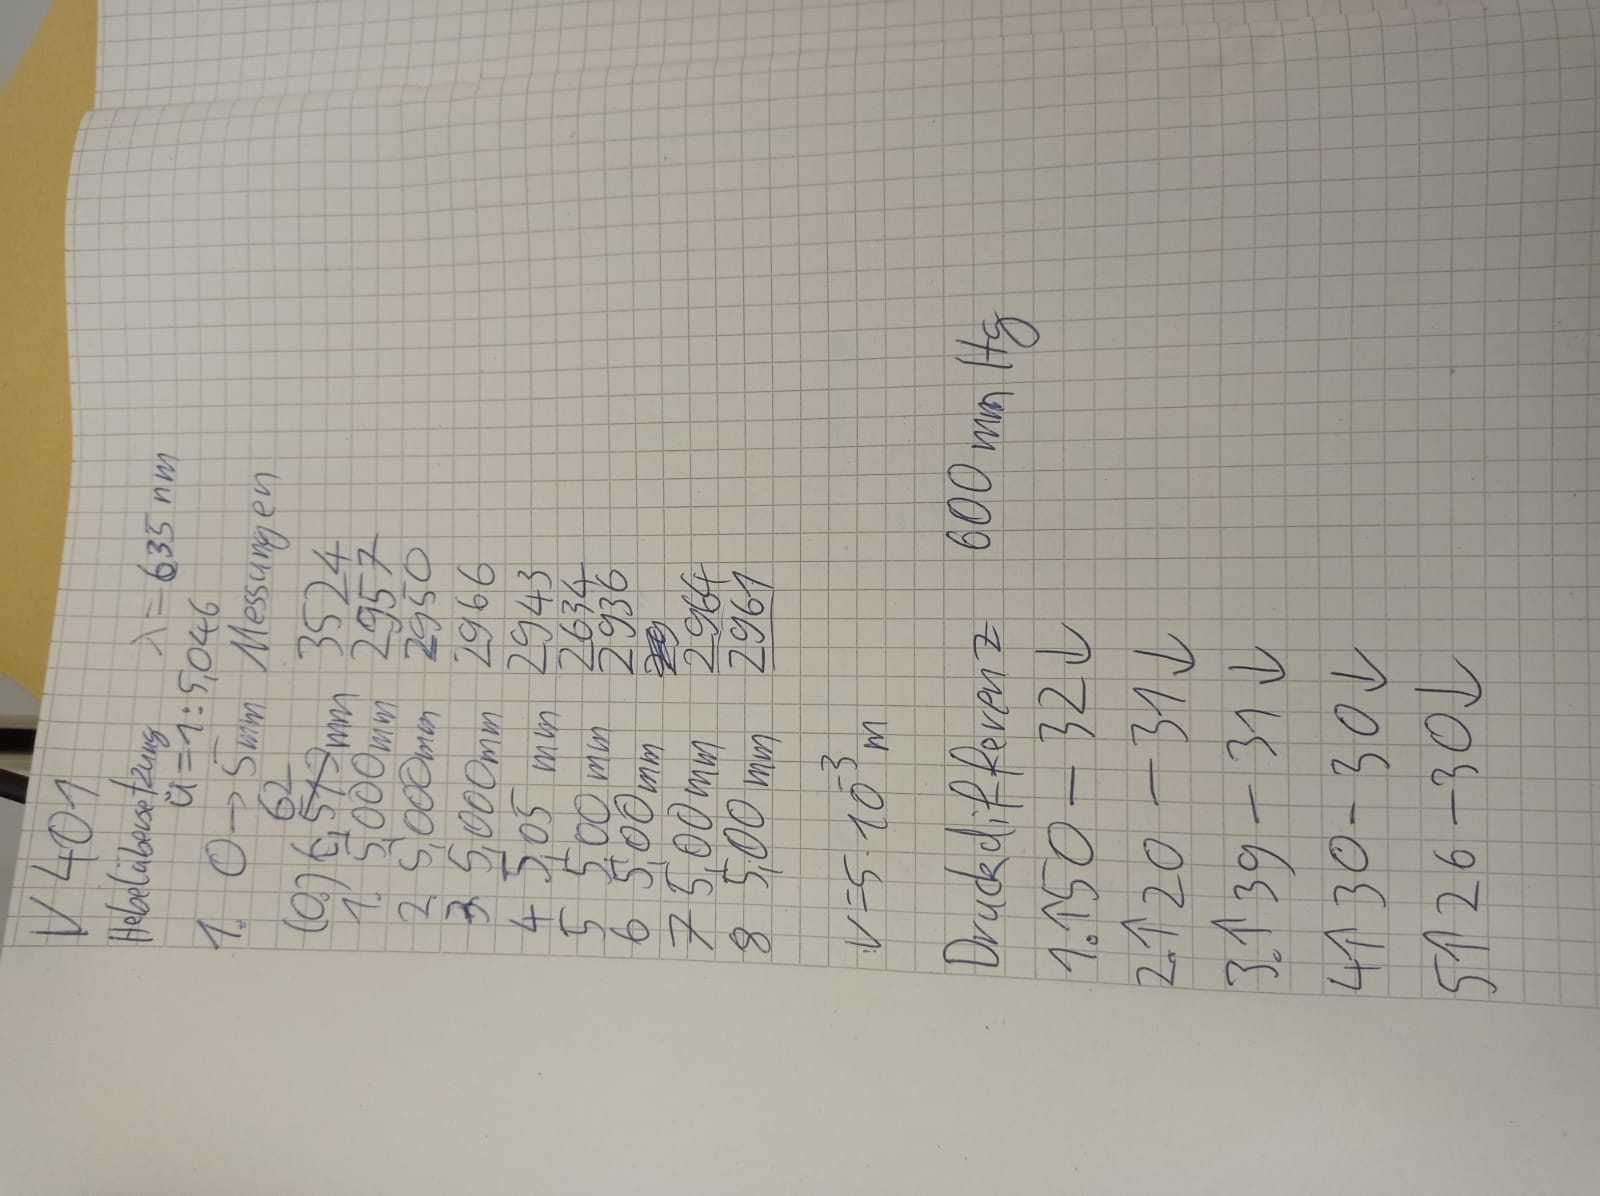 V401
Hebelübersetzung λ = 635 nm
ü = 1 : 5,046
1. 0 → 5mm Messungen
62
(0.) 6, mm 3524
1. 5,000mm 2957
2 5,000mm 2950
3 5,000mm 2966
4 5,05 mm 2943
5 5,00 mm 2634
6 5,00mm 2936
7 5,00mm 2964
8 5,00 mm 2961
v = 5 · 10⁻³ m
Druckdifferenz 600 mm Hg
1. ↑50 – 32↓
2. ↑20 – 31↓
3. ↑39 – 31↓
4↑ 30 – 30↓
5↑ 26 – 30↓